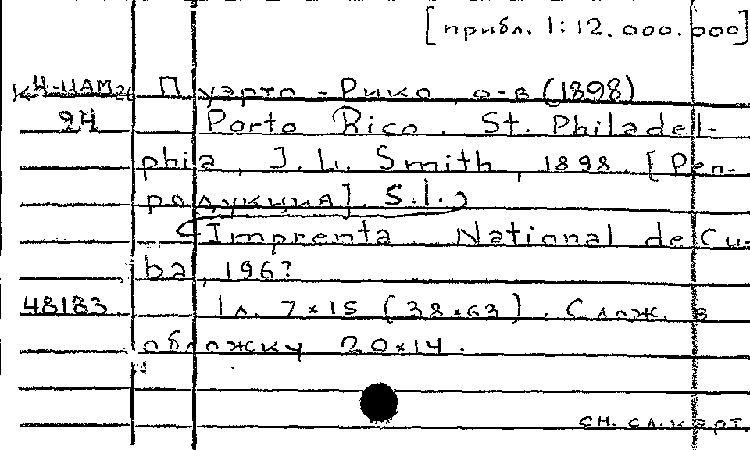 [прибл. 1:12.000.000]
Пуэрто-Рико, о-в (1898)
94
Porto Rico. St. Philadel-
phia, J.L. Smith, 1898. [Реп-
родукция]. S.l.,
Imprenta National de Cu-
ba, 196?
48183 1 л. 7×15 (38×63). Слож. в
обложку 20×14.
см. сл. карт.